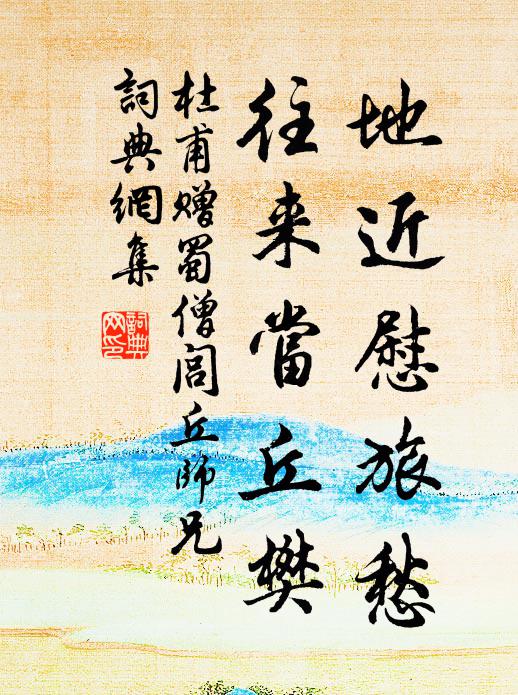 地近慰旅愁
往来當丘樊
杜甫贈蜀僧閭丘師兄
詞典網集
詞典网印